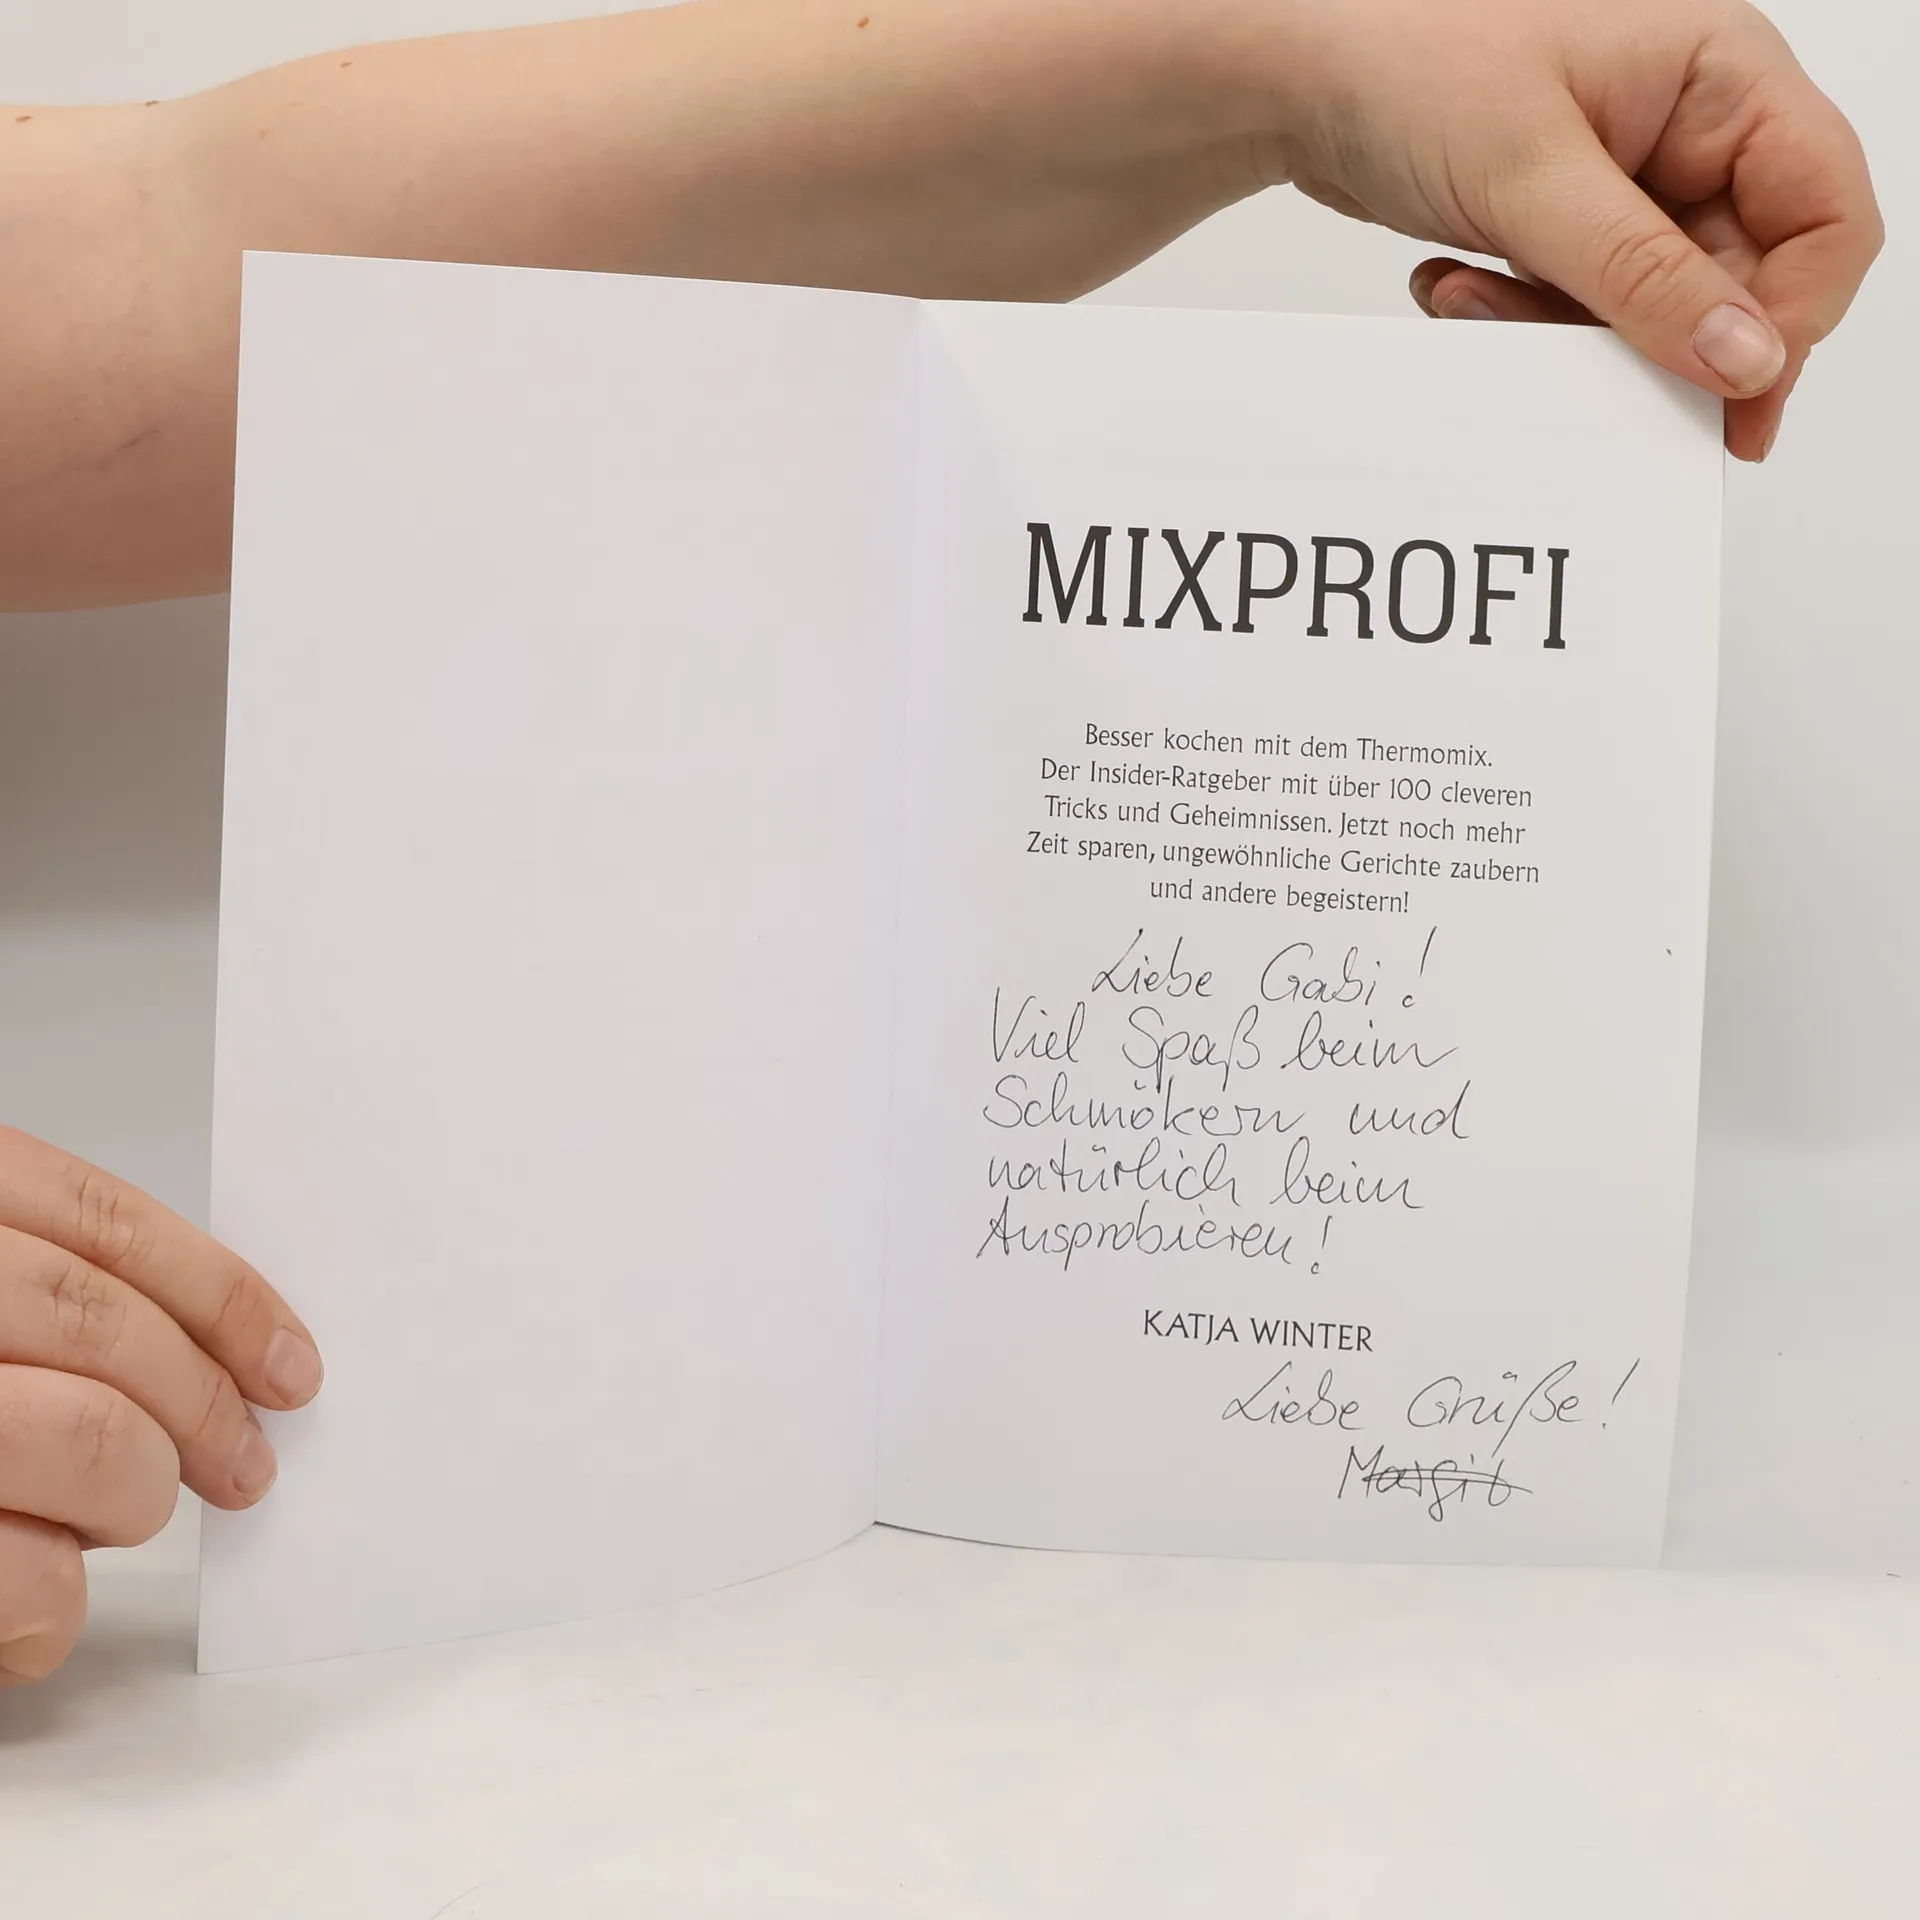 MIXPROFI
Besser kochen mit dem Thermomix.
Der Insider-Ratgeber mit über 100 cleveren
Tricks und Geheimnissen. Jetzt noch mehr
Zeit sparen, ungewöhnliche Gerichte zaubern
und andere begeistern!
Liebe Gabi!
Viel Spaß beim
Schmökern und
natürlich beim
Ausprobieren!
KATJA WINTER
Liebe Grüße!
Margit